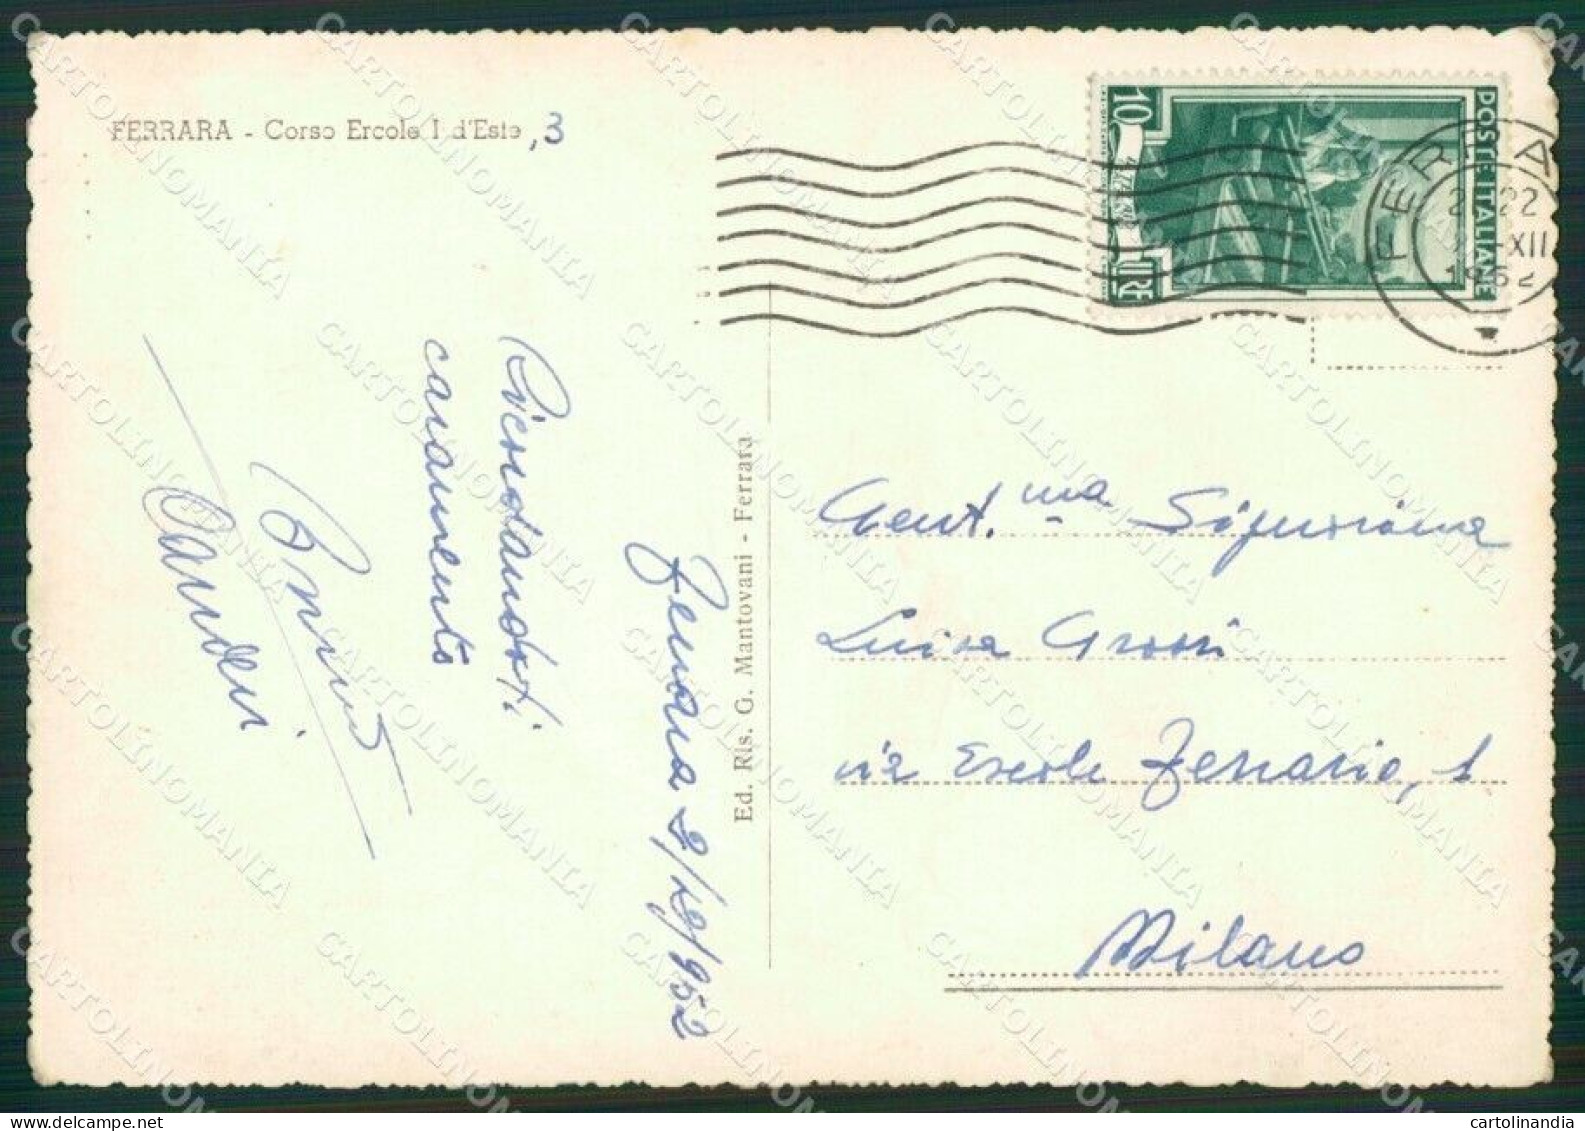 FERRARA - Corso Ercole I d'Este ,3
Ricordandoti
caramente
Ferrara 2/12/952
Ed. Ris. G. Mantovani - Ferrara
10
LIRE
POSTE ITALIANE
FERRARA
22
XII
1952
Gent.ma Signorina
Luisa Grossi
via Ercole Ferrario, 1
Milano
CARTOLINOMANIA
cartolinandia